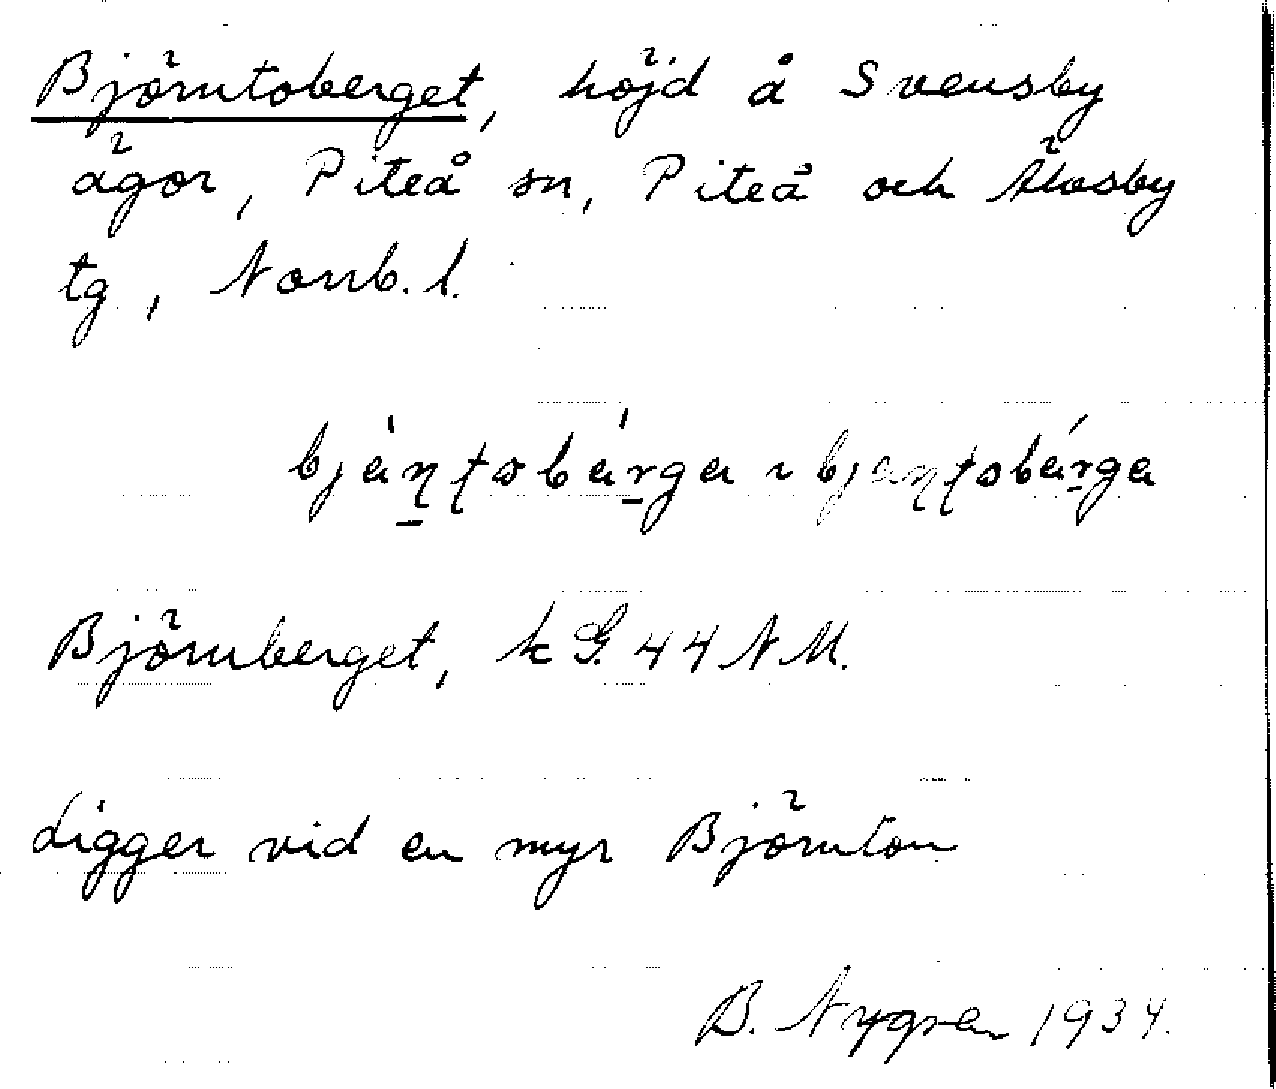 Björntoberget, höjd å Svensby
ägor, Piteå sn, Piteå och Älvsby
tg, Norrb. l.
bjáṇtobárga ~ bjaṇtobárga
Björnberget, k G. 44 NM.
Ligger vid en myr Björnton
B. Nygren 1934.